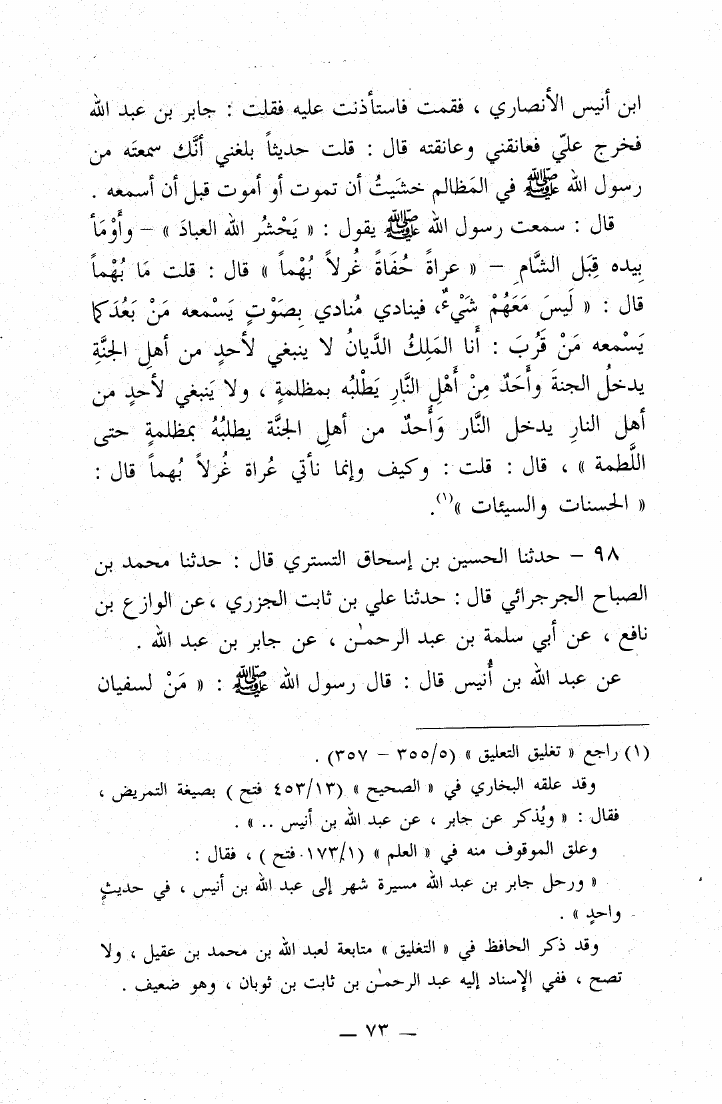 ابن أنيس الأنصاري ، فقمت فاستأذنت عليه فقلت : جابر بن عبد الله
فخرج عليّ فعانقني وعانقته قال : قلت حديثاً بلغني أنَّك سمعتَه من
رسول الله ﷺ في المَظالم خشيَتُ أن تموت أو أموت قبل أن أسمعه .
قال : سمعت رسول الله ﷺ يقول : « يَحْشُر الله العبادَ » – وأَوْمَأ
بِيده قِبَل الشَّامِ – « عراةً حُفَاةً غُرلاً بُهْماً » قال : قلت مَا بُهْماً
قال : « لَيسَ مَعَهُمْ شَيْءٌ، فينادي مُنادي بِصَوْتٍ يَسْمعه مَنْ بَعُدَ كما
يَسْمعه مَنْ قَرُبَ : أنا المَلِكُ الدَّيانُ لا ينبغي لأحدٍ من أهلِ الجنَّةِ
يدخلُ الجنةَ وأَحَدٌ مِنْ أهْلِ النَّارِ يَطْلبُه بمظلمةٍ ، ولا يَنبغي لأحدٍ من
أهل النارِ يدخل النَّار وَأَحدٌ من أهلِ الجنَّة يطلبُهُ بمظلمةٍ حتى
اللَّطمة » ، قال : قلت : وكيف وإنما نأتي عُراة غُرلاً بُهماً قال :
« الحسنات والسيئات »(١).
٩٨ – حدثنا الحسين بن إسحاق التستري قال : حدثنا محمد بن
الصباح الجرجرائي قال : حدثنا علي بن ثابت الجزري ، عن الوازع بن
نافع ، عن أبي سلمة بن عبد الرحمـٰن ، عن جابر بن عبد الله .
عن عبد الله بن أُنيس قال : قال رسول الله ﷺ : « مَنْ لسفيان
(١) راجع « تغليق التعليق » (٣٥٥/٥ – ٣٥٧) .
وقد علقه البخاري في « الصحيح » (٤٥٣/١٣ فتح ) بصيغة التمريض ،
فقال : « ويُذكر عن جابر ، عن عبد الله بن أنيس .. » .
وعلق الموقوف منه في « العلم » (١٧٣/١ فتح ) ، فقال :
« ورحل جابر بن عبد الله مسيرة شهر إلى عبد الله بن أنيس ، في حديثٍ
واحدٍ » .
وقد ذكر الحافظ في « التغليق » متابعة لعبد الله بن محمد بن عقيل ، ولا
تصح ، ففي الإسناد إليه عبد الرحمـٰن بن ثابت بن ثوبان ، وهو ضعيف .
– ٧٣ –